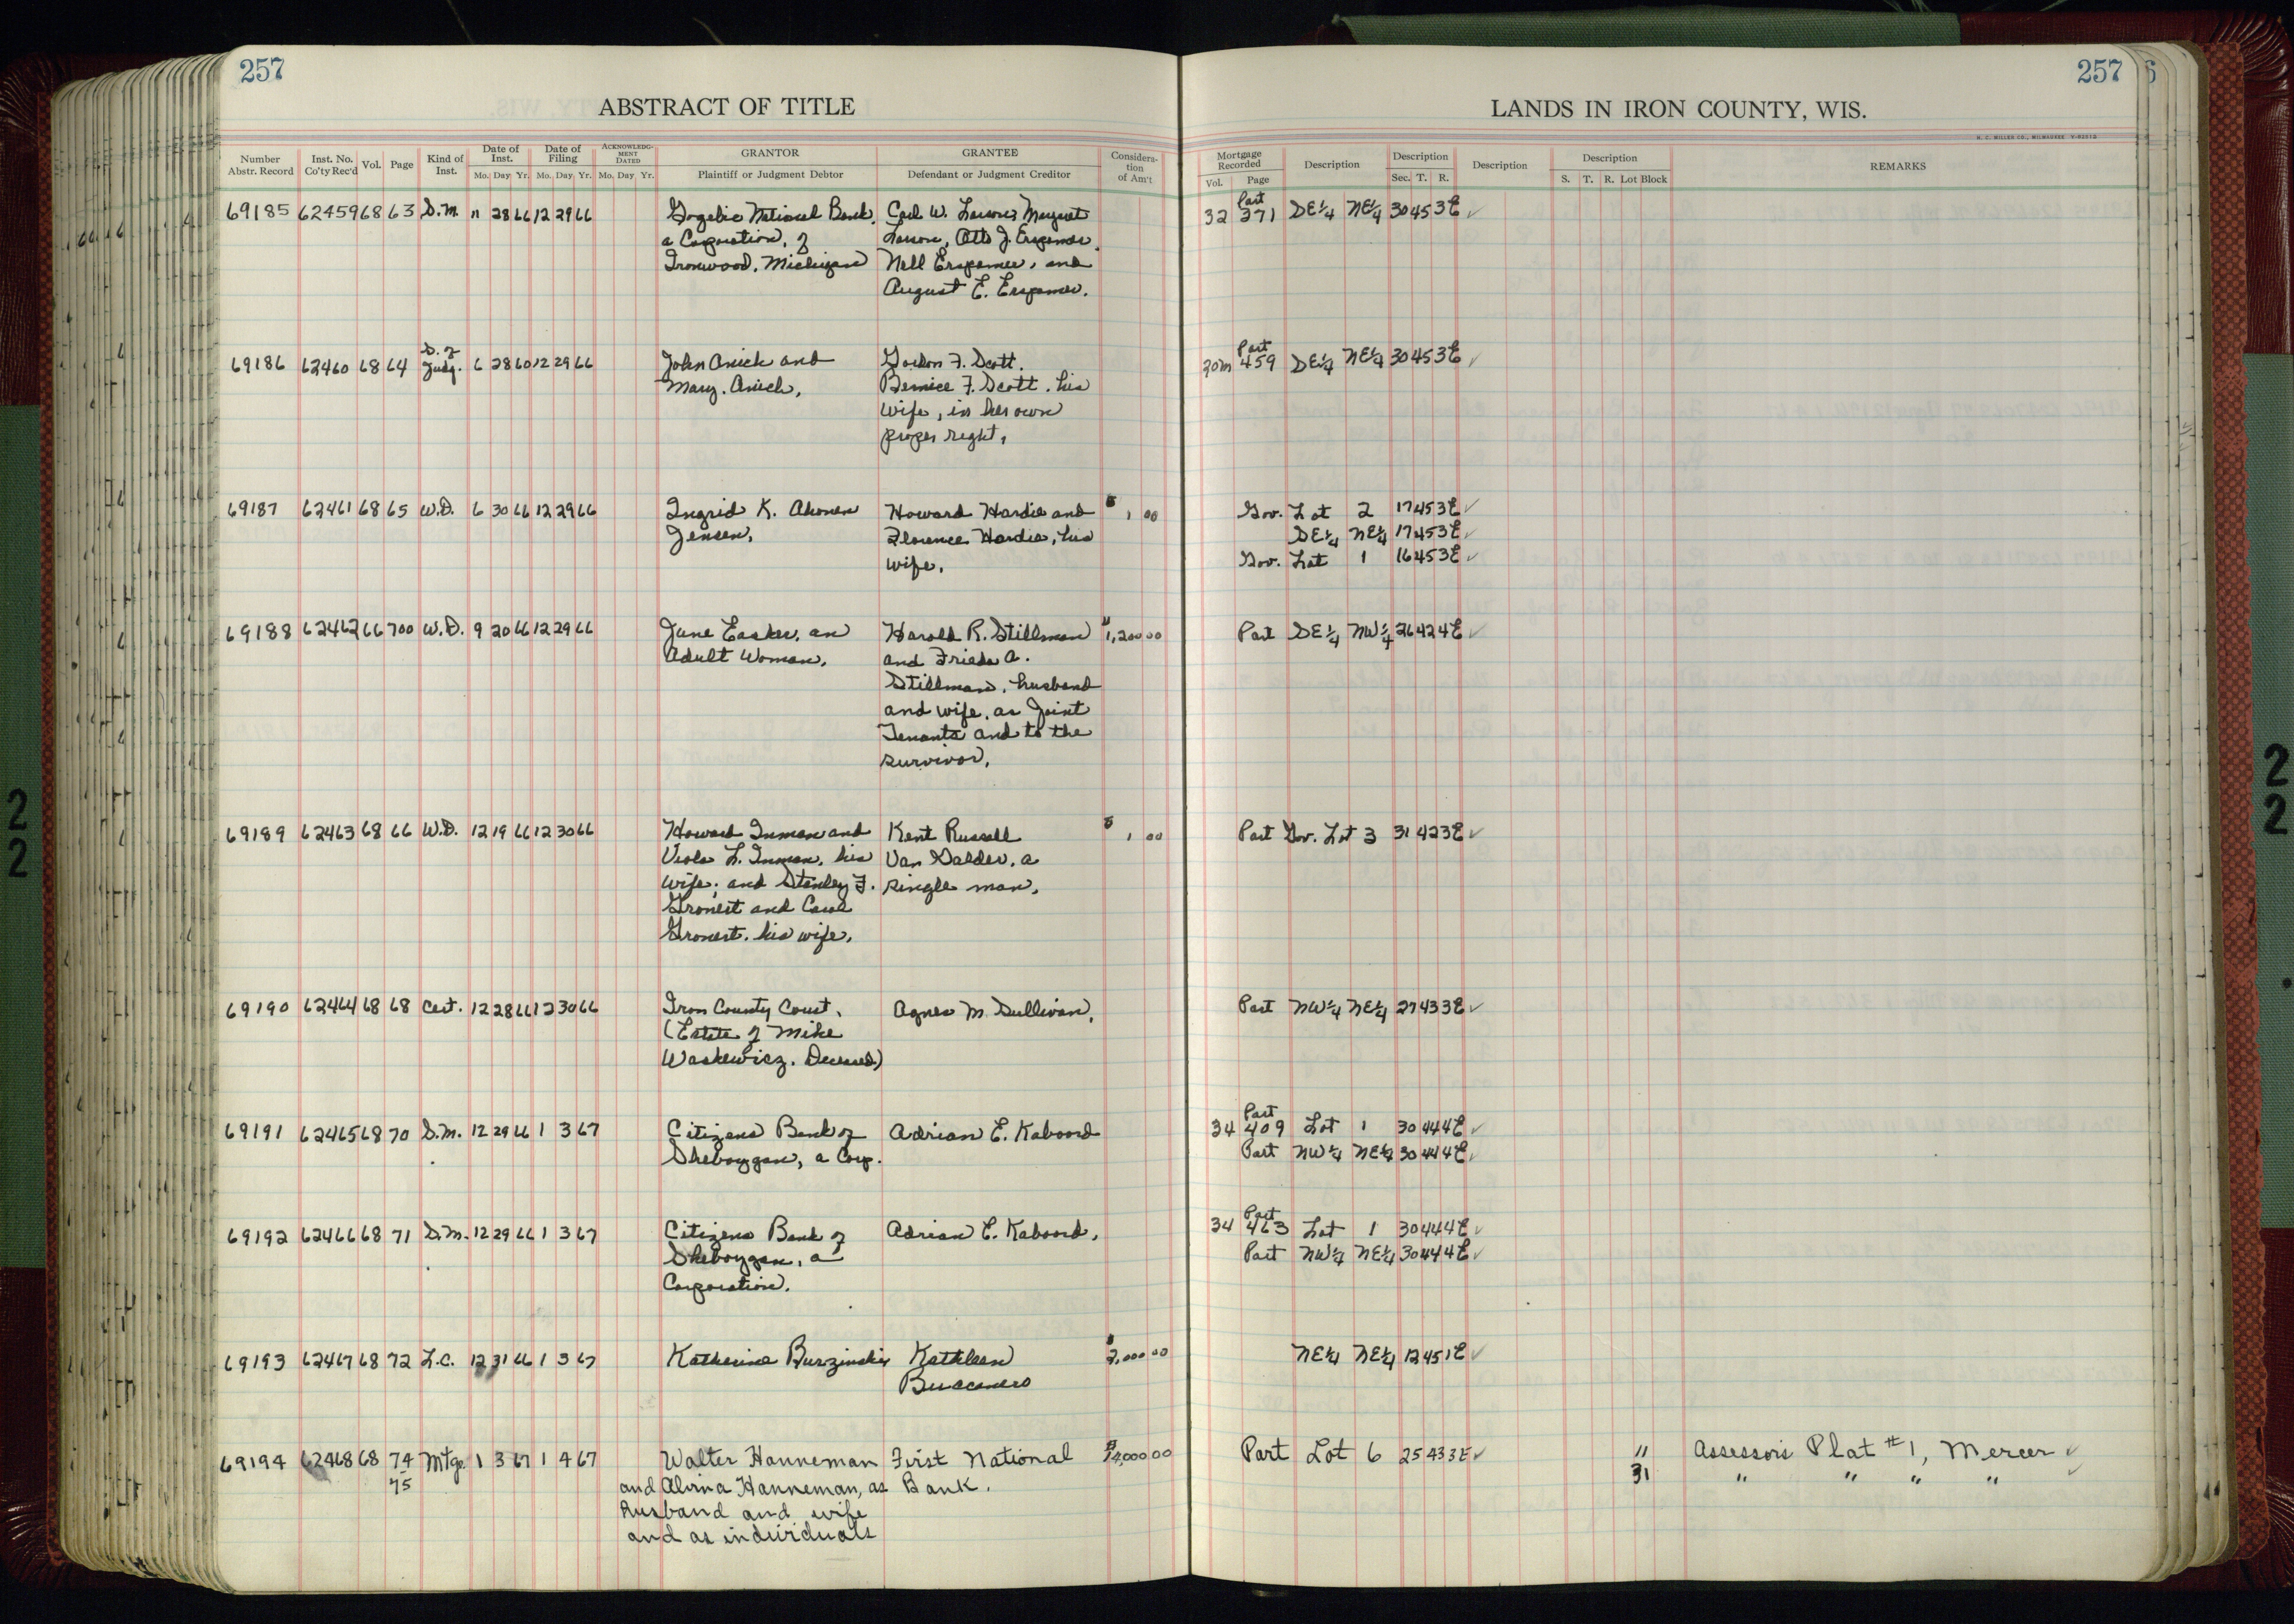 257
ABSTRACT OF TITLE
Number Abstr. Record Inst. No. Co'ty Rec'd Vol. Page Kind of Inst. Date of Inst. Mo. Day Yr. Date of Filing Mo. Day Yr. ACKNOWLEDGMENT DATED Mo. Day Yr. GRANTOR Plaintiff or Judgment Debtor GRANTEE Defendant or Judgment Creditor Consideration of Am't
69185 62459 68 63 S.M. 11 28 66 12 29 66 Gogebic National Bank, Carl W. Larson, Margaret
a Corporation, of Larson, Otto J. Erspamer,
Ironwood, Michigan Nell Erspamer, and
August E. Erspamer.
69186 62460 68 64 S. of Judg. 6 28 60 12 29 66 John Anich and Gordon F. Scott,
Mary Anich, Bernice F. Scott, his
wife, in her own
proper right,
69187 62461 68 65 W.D. 6 30 66 12 29 66 Ingrid K. Ahonen Howard Hardie and $ 1 00
Jensen, Florence Hardie, his
wife,
69188 62462 66 700 W.D. 9 20 66 12 29 66 June Easker, an Harold R. Stillman $ 1,200 00
Adult Woman, and Frieda A.
Stillman, husband
and wife, as Joint
Tenants and to the
survivor,
69189 62463 68 66 W.D. 12 19 66 12 30 66 Howard Inman and Kent Russell $ 1 00
Viola L. Inman, his Van Galder, a
wife; and Stanley F. single man,
Gronert and Carol
Gronert, his wife,
69190 62464 68 68 Cert. 12 28 66 12 30 66 Iron County Court, Agnes M. Sullivan,
(Estate of Mike
Waskewicz, Deceased)
69191 62465 68 70 S.M. 12 29 66 1 3 67 Citizens Bank of Adrian E. Kaboord
Sheboygan, a Corp.
69192 62466 68 71 S.M. 12 29 66 1 3 67 Citizens Bank of Adrian E. Kaboord,
Sheboygan, a
Corporation.
69193 62467 68 72 L.C. 12 31 66 1 3 67 Katherine Burzinski Kathleen $ 2,000 00
69194 62468 68 74 Mtge 1 3 67 1 4 67 Walter Hanneman First National $ 14,000 00
75 and Alvina Hanneman, as Bank.
husband and wife
and as individuals
257
LANDS IN IRON COUNTY, WIS.
H. C. MILLER CO., MILWAUKEE
Mortgage Recorded Vol. Page Description Description Sec. T. R. Description Description S. T. R. Lot Block REMARKS
Part
32 271 SE¼ NE¼ 30 45 3E ✓
Part
20m 459 SE¼ NE¼ 30 45 3E ✓
Gov. Lot 2 17 45 3E ✓
SE¼ NE¼ 17 45 3E ✓
Gov. Lot 1 16 45 3E ✓
Part SE¼ NW¼ 26 42 4E ✓
Part Gov. Lot 3 31 42 3E ✓
Part NW¼ NE¼ 27 43 3E ✓
Part
34 409 Lot 1 30 44 4E ✓
Part NW¼ NE¼ 30 44 4E ✓
Part
34 463 Lot 1 30 44 4E ✓
Part NW¼ NE¼ 30 44 4E ✓
NE¼ NE¼ 12 45 1E ✓
Part Lot 6 25 43 3E ✓ 11 Assessors Plat #1, Mercer ✓
31 " " " " ✓
22
22